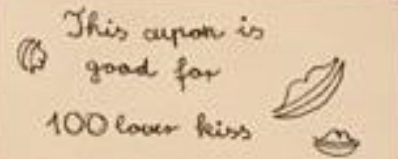 This cupon is
good for
100 lover kiss